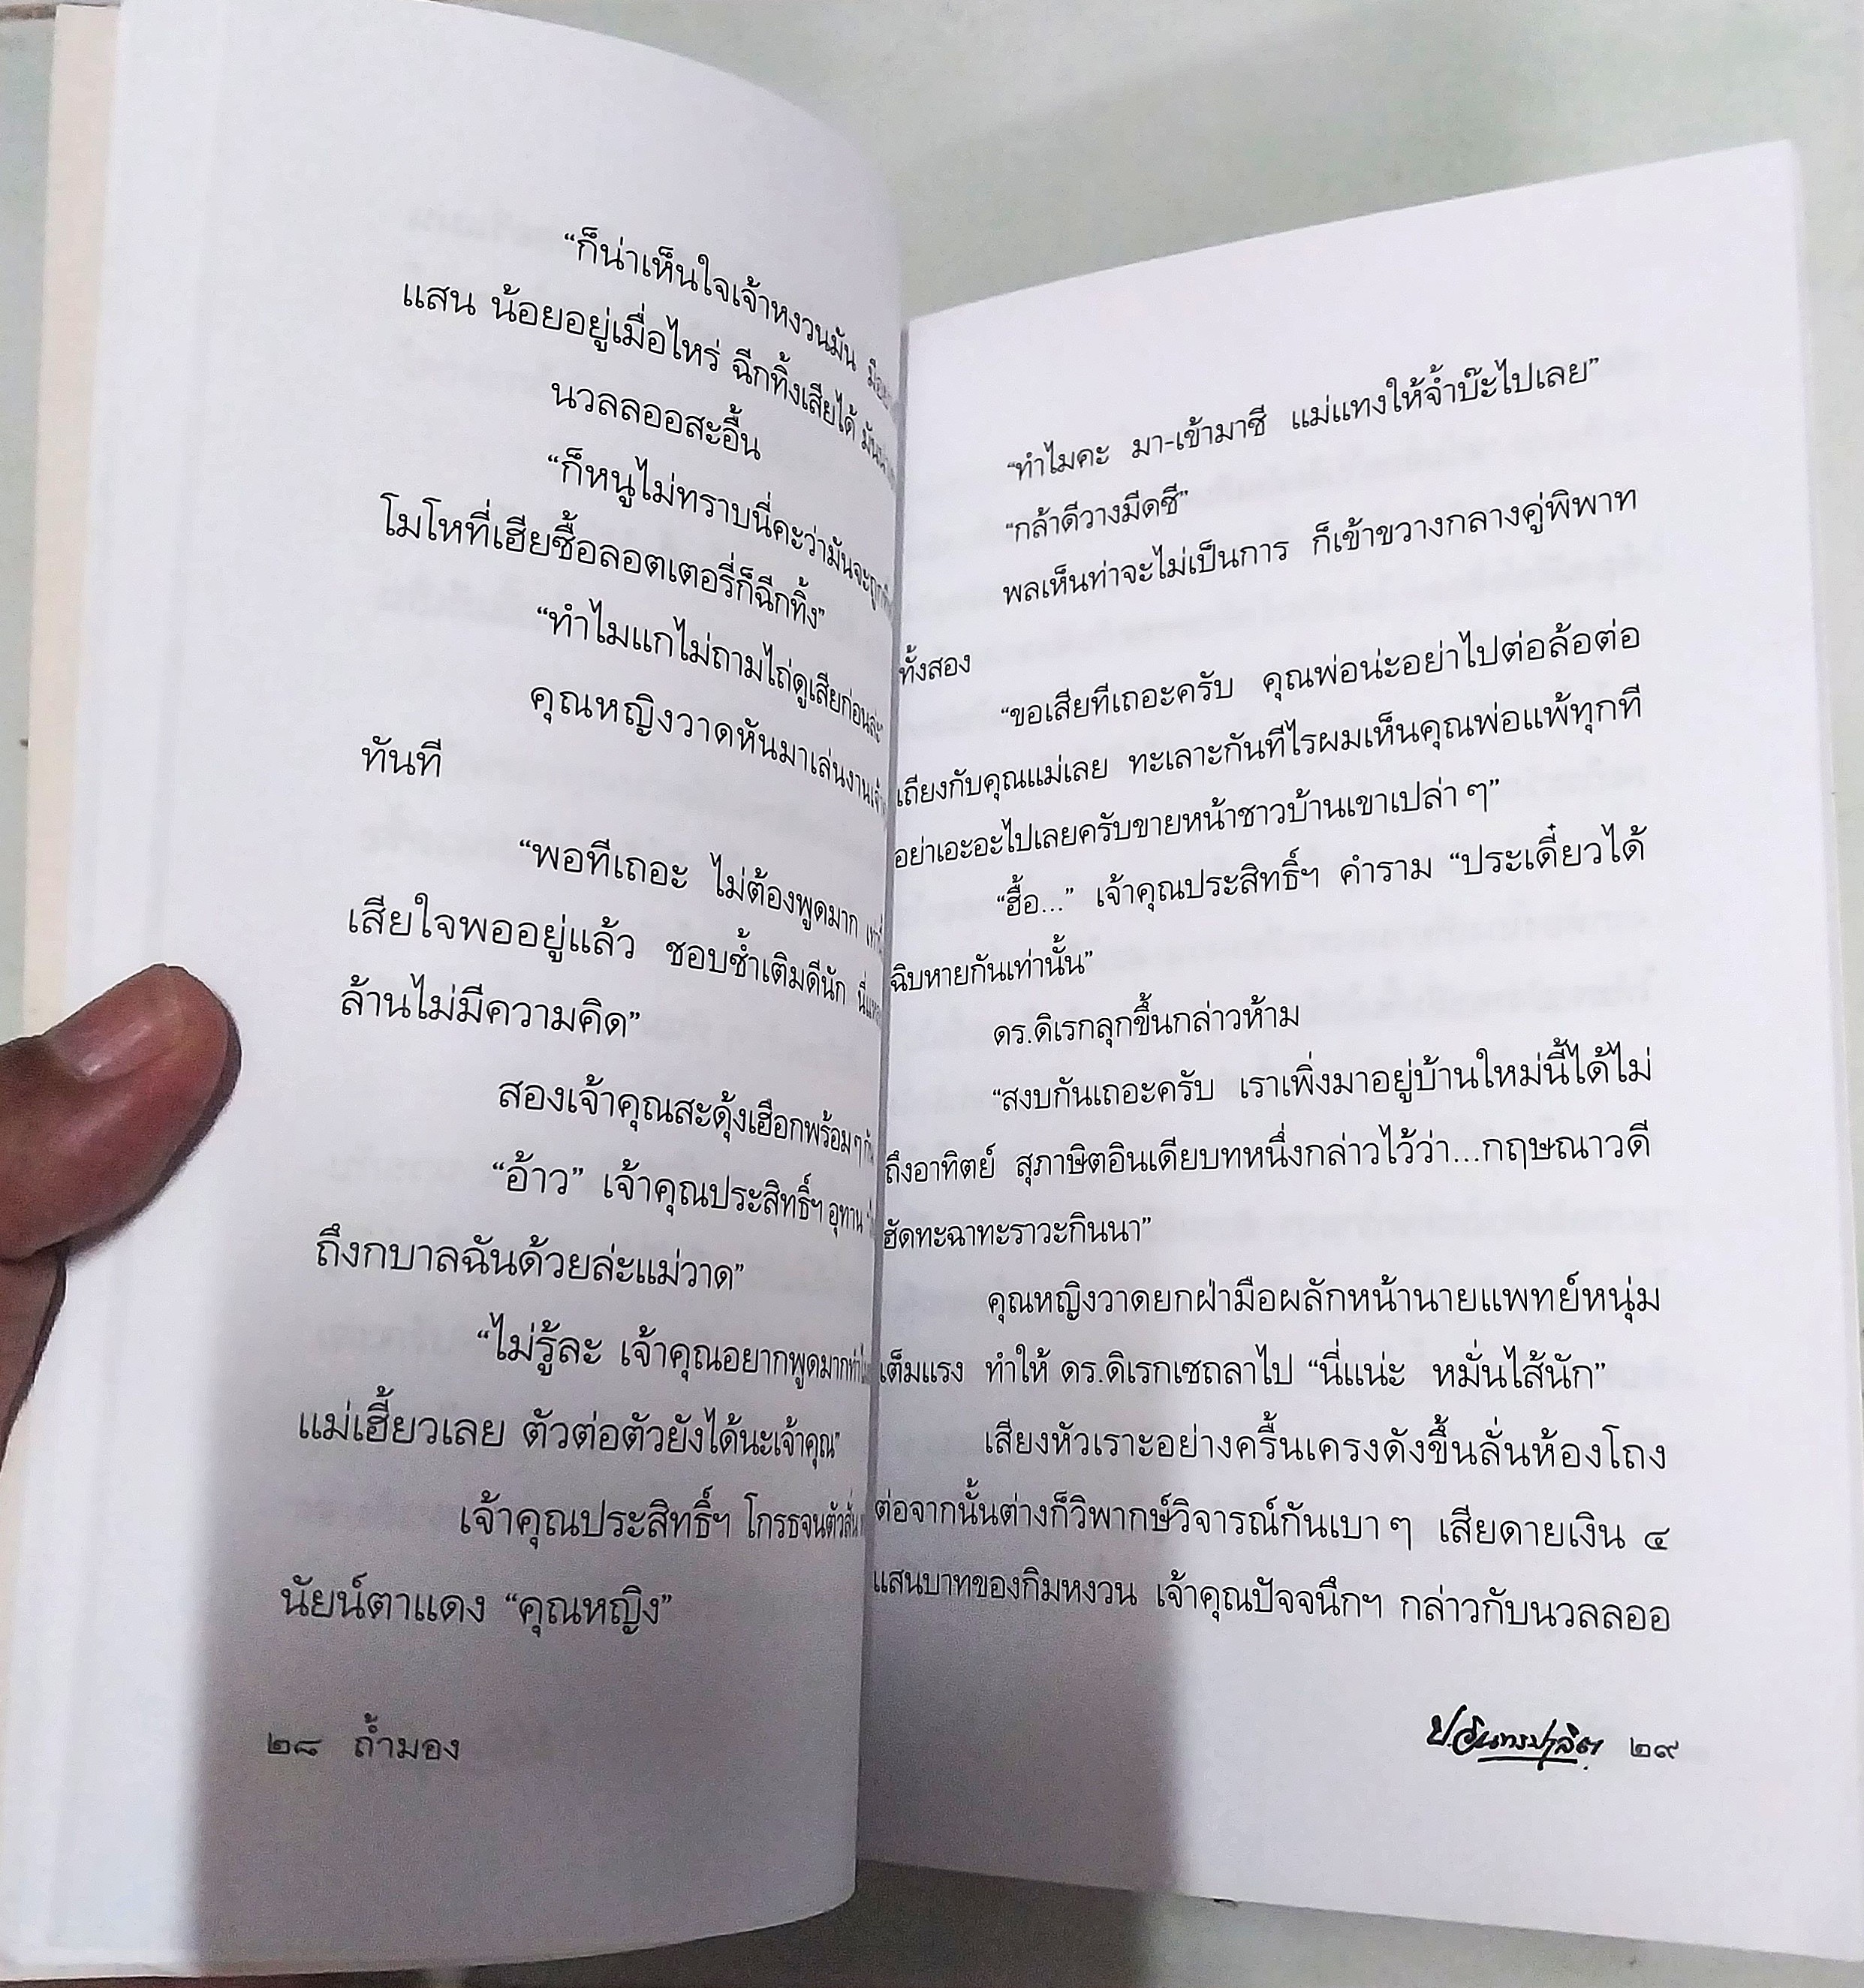 “ก็น่าเห็นใจเจ้าหงวนมัน
แสน น้อยอยู่เมื่อไหร่ ฉีกทิ้งเสียได้
นวลลออสะอื้น
“ก็หนูไม่ทราบนี่คะว่ามันจะถูก
โมโหที่เฮียซื้อลอตเตอรี่ก็ฉีกทิ้ง”
“ทำไมแกไม่ถามไถ่ดูเสียก่อนล่ะ”
คุณหญิงวาดหันมาเล่นงาน
ทันที
“พอทีเถอะ ไม่ต้องพูดมาก
เสียใจพออยู่แล้ว ชอบซ้ำเติมดีนัก
ล้านไม่มีความคิด”
สองเจ้าคุณสะดุ้งเฮือกพร้อมๆ กัน
“อ้าว” เจ้าคุณประสิทธิ์ฯ อุทาน
ถึงกบาลฉันด้วยล่ะแม่วาด”
“ไม่รู้ละ เจ้าคุณอยากพูดมากทำไม
แม่เฮี้ยวเลย ตัวต่อตัวยังได้นะเจ้าคุณ”
เจ้าคุณประสิทธิ์ฯ โกรธจนตัวสั่น
นัยน์ตาแดง “คุณหญิง”
๒๘ ถ้ำมอง
“ทำไมคะ มา-เข้ามาซี แม่แทงให้จ้ำบ๊ะไปเลย”
“กล้าดีวางมีดซี”
พลเห็นท่าจะไม่เป็นการ ก็เข้าขวางกลางคู่พิพาท
ทั้งสอง
“ขอเสียทีเถอะครับ คุณพ่อน่ะอย่าไปต่อล้อต่อ
เถียงกับคุณแม่เลย ทะเลาะกันทีไรผมเห็นคุณพ่อแพ้ทุกที
อย่าเอะอะไปเลยครับขายหน้าชาวบ้านเขาเปล่า ๆ”
“ฮื้อ...” เจ้าคุณประสิทธิ์ฯ คำราม “ประเดี๋ยวได้
ฉิบหายกันเท่านั้น”
ดร.ดิเรกลุกขึ้นกล่าวห้าม
“สงบกันเถอะครับ เราเพิ่งมาอยู่บ้านใหม่นี้ได้ไม่
ถึงอาทิตย์ สุภาษิตอินเดียบทหนึ่งกล่าวไว้ว่า...กฤษณาวดี
ฮัดทะฉาทะราวะกินนา”
คุณหญิงวาดยกฝ่ามือผลักหน้านายแพทย์หนุ่ม
เต็มแรง ทำให้ ดร.ดิเรกเซถลาไป “นี่แน่ะ หมั่นไส้นัก”
เสียงหัวเราะอย่างครื้นเครงดังขึ้นลั่นห้องโถง
ต่อจากนั้นต่างก็วิพากษ์วิจารณ์กันเบา ๆ เสียดายเงิน ๔
แสนบาทของกิมหงวน เจ้าคุณปัจจนึกฯ กล่าวกับนวลลออ
ป.อินทรปาลิต ๒๙